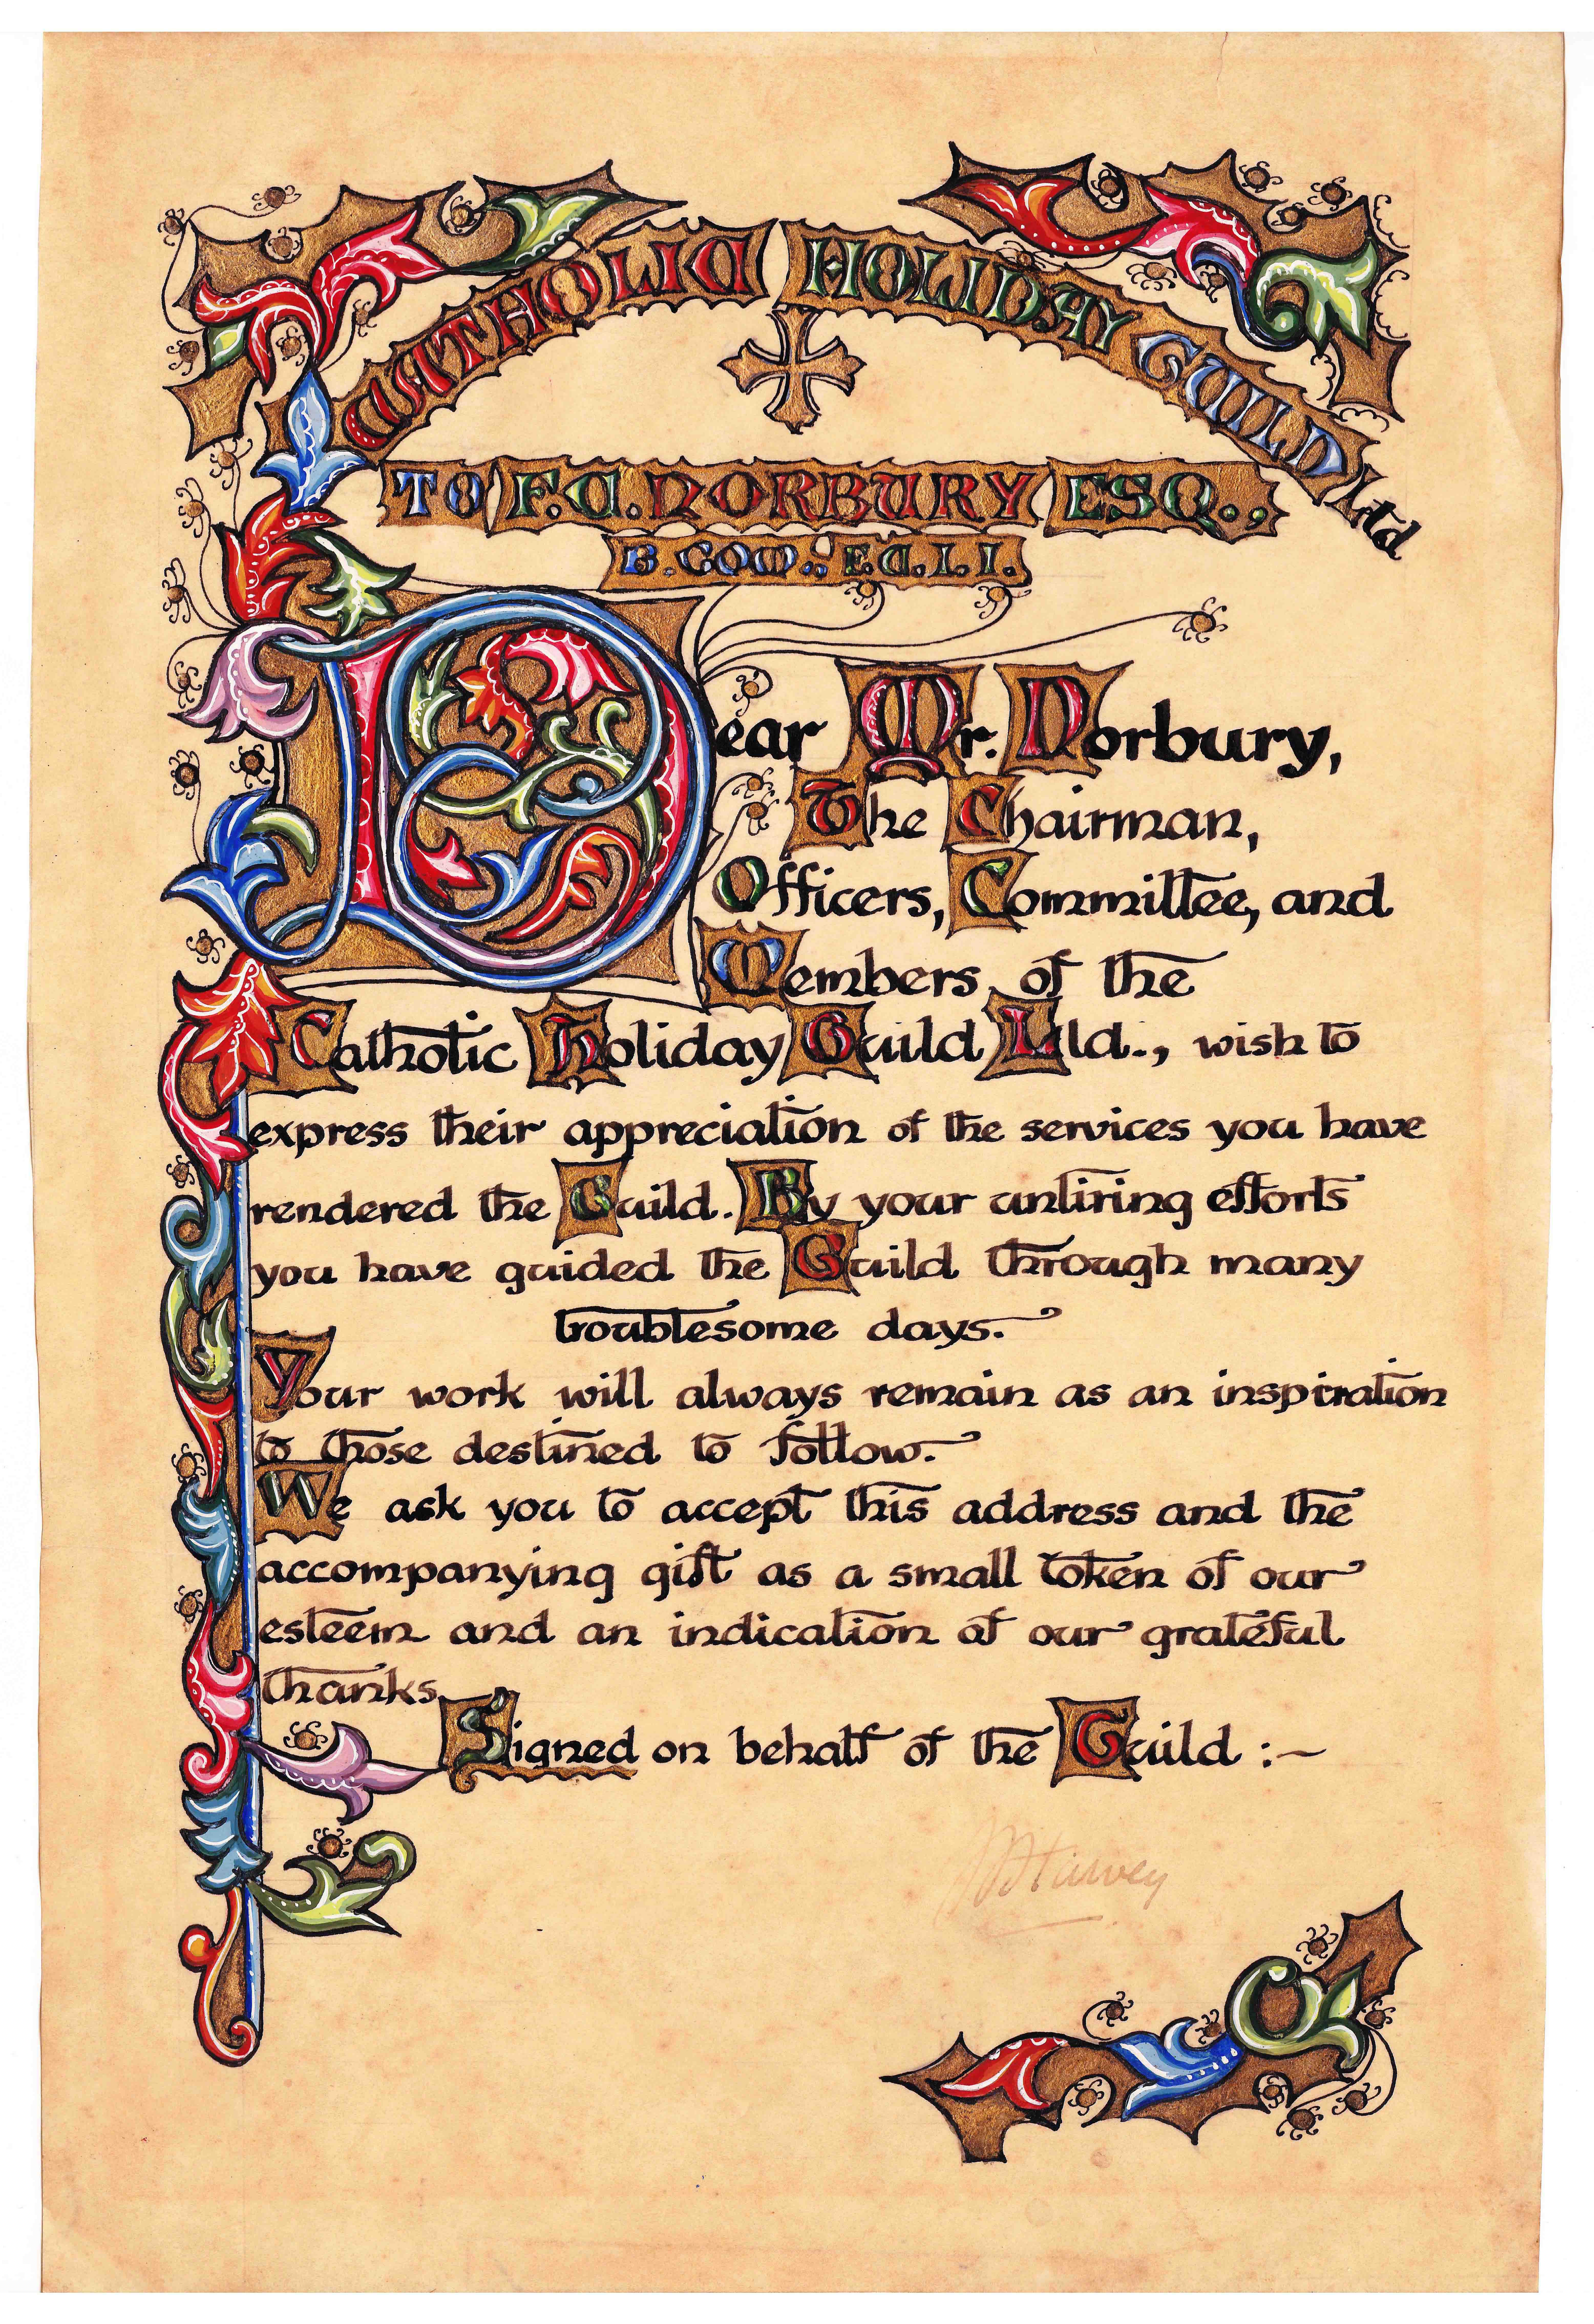 CATHOLIC HOLIDAY GUILD Ltd
TO F.C. NORBURY ESQ.,
B.COM.; F.C.I.I.
Dear Mr. Norbury,
The Chairman,
Officers, Committee, and
Members of the
Catholic Holiday Guild Ltd., wish to
express their appreciation of the services you have
rendered the Guild. By your untiring efforts
you have guided the Guild through many
troublesome days.
Your work will always remain as an inspiration
to those destined to follow.
We ask you to accept this address and the
accompanying gift as a small token of our
esteem and an indication of our grateful
thanks.
Signed on behalf of the Guild :-
Harvey